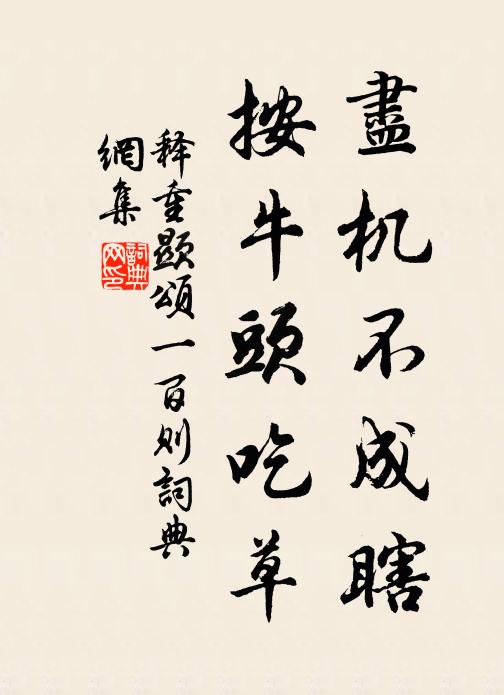 盡机不成瞎
按牛頭吃草
释重顯頌一百则詞典
網集
詞典网印